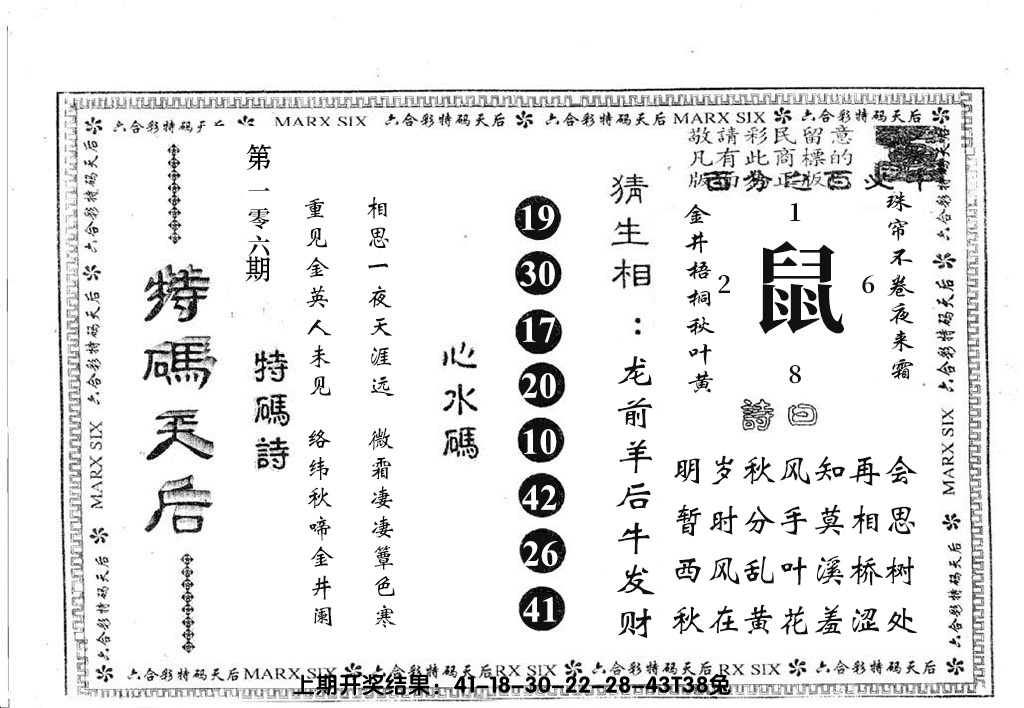 六合彩特码 MARX SIX 六合彩特码天后 六合彩特码天后 MARX SIX 六合彩特码天后
敬請彩民留意
凡有此商標的
版面 正版
第一零六期
特碼天后
特碼詩
重见金英人未见 络纬秋啼金井阑
相思一夜天涯远 微霜凄凄簟色寒
心水碼
19
30
17
20
10
42
26
41
猜生相：龙前羊后牛发财
金井梧桐秋叶黄
1
2
鼠
6
8
珠帘不卷夜来霜
詩曰
明岁秋风知再会
暂时分手莫相思
西风乱叶溪桥树
秋在黄花羞涩处
六合彩特码天后 六合彩特码天后 MARX SIX 六合彩特码天后
六合彩特码天后 六合彩特码天后 MARX SIX 六合彩特码天后
六合彩特码天后 MARX SIX 六合彩特码天后 RX SIX 六合彩特码天后 RX SIX 六合彩特码天后
上期开奖结果：41-18-30-22-28-43T38兔